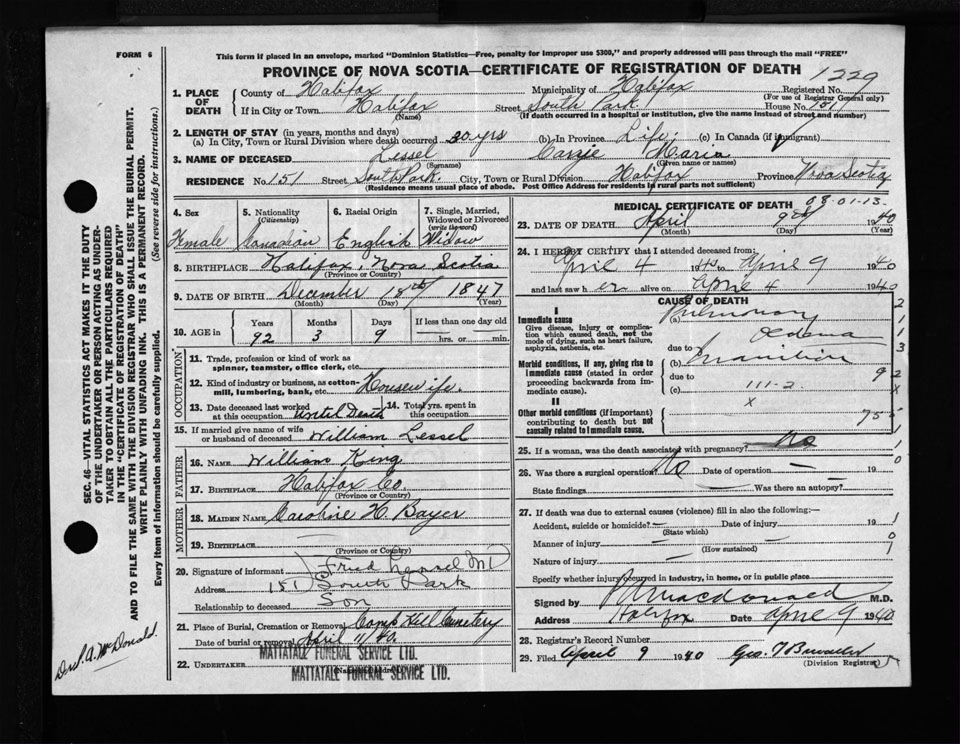 FORM 6
This form if placed in an envelope, marked "Dominion Statistics—Free, penalty for improper use $300," and properly addressed will pass through the mail "FREE"
PROVINCE OF NOVA SCOTIA—CERTIFICATE OF REGISTRATION OF DEATH
1229
1. PLACE OF DEATH
County of Halifax
Municipality of Halifax
Registered No.
(For use of Registrar General only)
If in City or Town Halifax
(Name)
Street South Park House No. 151
(If death occurred in a hospital or institution, give the name instead of street and number)
2. LENGTH OF STAY (in years, months and days)
(a) In City, Town or Rural Division where death occurred 20 yrs (b) In Province Life; (c) In Canada (if immigrant)
3. NAME OF DECEASED Lessel Carrie Maria
(Surname) (Given name or names)
RESIDENCE No. 151 Street South Park. City, Town or Rural Division Halifax Province Nova Scotia
(Residence means usual place of abode. Post Office Address for residents in rural parts not sufficient)
4. Sex 5. Nationality (Citizenship) 6. Racial Origin 7. Single, Married, Widowed or Divorced (write the word)
Female Canadian English Widow
8. BIRTHPLACE Halifax, Nova Scotia
(Province or Country)
9. DATE OF BIRTH December 18th 1847
(Month) (Day) (Year)
10. AGE in Years Months Days If less than one day old
92 3 9 hrs. or min.
OCCUPATION
11. Trade, profession or kind of work as spinner, teamster, office clerk, etc.
12. Kind of industry or business, as cotton-mill, lumbering, bank, etc. Housewife.
13. Date deceased last worked at this occupation Until Death 14. Total yrs. spent in this occupation
15. If married give name of wife or husband of deceased William Lessel
FATHER
16. NAME William King
17. BIRTHPLACE Halifax Co.
(Province or Country)
MOTHER
18. MAIDEN NAME Caroline H. Bayer
19. BIRTHPLACE —
(Province or Country)
20. Signature of informant Fred Lessel
Address 151 South Park
Relationship to deceased Son
21. Place of Burial, Cremation or Removal Camp Hill Cemetery
Date of burial or removal April 11/40.
22. UNDERTAKER MATTATALL FUNERAL SERVICE LTD.
(Name and Address)
MATTATALL FUNERAL SERVICE LTD.
MEDICAL CERTIFICATE OF DEATH
08-01-13-
23. DATE OF DEATH April 9th 1940
(Month) (Day) (Year)
24. I HEREBY CERTIFY that I attended deceased from:
April 4 1940 to April 9 1940
and last saw her alive on April 4 1940
CAUSE OF DEATH
I
Immediate cause
Give disease, injury or complication which caused death, not the mode of dying, such as heart failure, asphyxia, asthenia, etc.
(a) Pulmonary Oedema
Morbid conditions, if any, giving rise to immediate cause (stated in order proceeding backwards from immediate cause).
(b) Inanition
due to
(c) 111-2
x
II
Other morbid conditions (if important) contributing to death but not causally related to immediate cause.
25. If a woman, was the death associated with pregnancy? No
26. Was there a surgical operation? No Date of operation — 19
State findings — Was there an autopsy? —
27. If death was due to external causes (violence) fill in also the following:—
Accident, suicide or homicide? — Date of injury — 19
(State which)
Manner of injury —
(How sustained)
Nature of injury —
Specify whether injury occurred in industry, in home, or in public place
Signed by Macdonald M.D.
Address Halifax Date April 9 1940
28. Registrar's Record Number
29. Filed April 9 1940 Geo.
(Division Registrar)
SEC. 46—VITAL STATISTICS ACT MAKES IT THE DUTY
OF THE UNDERTAKER OR PERSON ACTING AS UNDER-
TAKER TO OBTAIN ALL THE PARTICULARS REQUIRED
IN THE "CERTIFICATE OF REGISTRATION OF DEATH"
AND TO FILE THE SAME WITH THE DIVISION REGISTRAR WHO SHALL ISSUE THE BURIAL PERMIT.
WRITE PLAINLY WITH UNFADING INK. THIS IS A PERMANENT RECORD.
Every item of information should be carefully supplied. (See reverse side for instructions.)
McDonald.